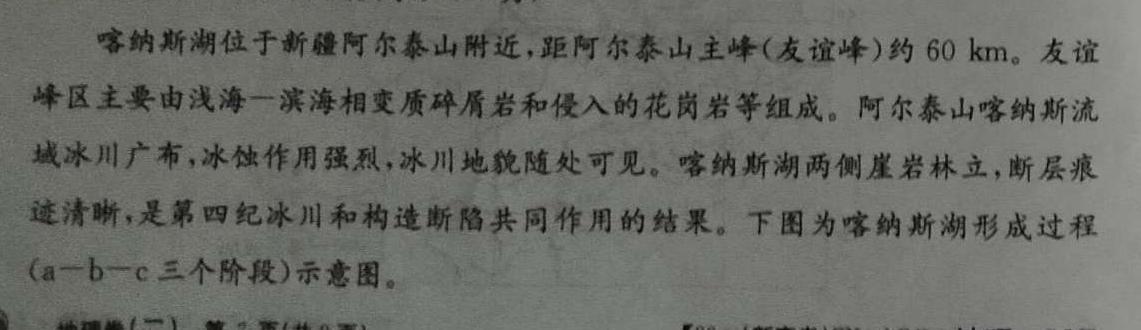 喀纳斯湖位于新疆阿尔泰山附近,距阿尔泰山主峰(友谊峰)约 60 km。友谊
峰区主要由浅海—滨海相变质碎屑岩和侵入的花岗岩等组成。阿尔泰山喀纳斯流
域冰川广布,冰蚀作用强烈,冰川地貌随处可见。喀纳斯湖两侧崖岩林立,断层痕
迹清晰,是第四纪冰川和构造断陷共同作用的结果。下图为喀纳斯湖形成过程
(a—b—c 三个阶段)示意图。